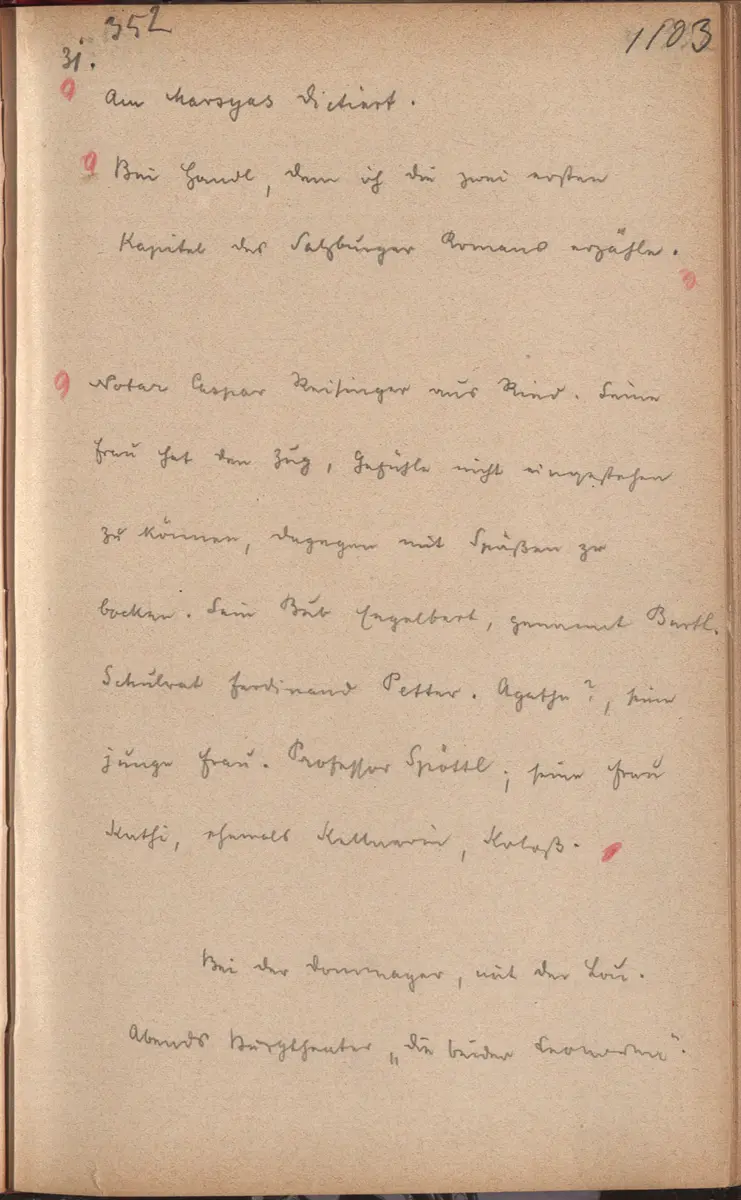 352
1103
31.
Am Marsyas dictiert.
Bei Handl, dem ich die zwei ersten
Kapitel des Salzburger Romans erzähle.
Notar Caspar Reisinger aus Ried. Seine
Frau hat den Zug, Gefühle nicht eingestehen
zu können, dagegen mit Späßen zu
bocken. Sein Bub Engelbert, genannt Bartl.
Schulrat Ferdinand Petter. Agathe?, seine
junge Frau. Professor Spöttl; seine Frau
Kathi, ehemals Kellnerin, Koloß.
Bei der Dommayer, mit der Lou.
Abends Burgtheater „die beiden Leonoren".